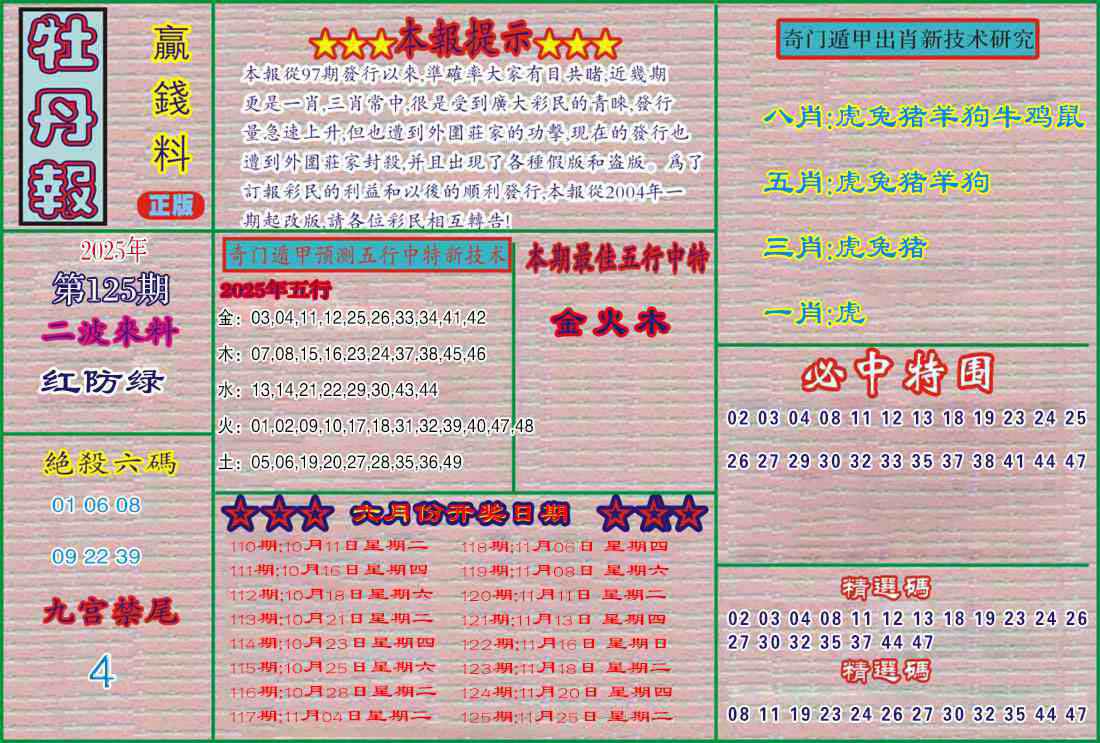 牡丹報
贏錢料
正版
★★★本報提示★★★
本報從97期發行以來,準確率大家有目共睹,近幾期
更是一肖,三肖常中,很是受到廣大彩民的青睞,發行
量急速上升,但也遭到外圍莊家的功擊,現在的發行也
遭到外圍莊家封殺,并且出現了各種假版和盗版。爲了
訂報彩民的利益和以後的順利發行,本報從2004年一
期起改版,請各位彩民相互轉告!
奇门遁甲出肖新技术研究
八肖:虎兔猪羊狗牛鸡鼠
五肖:虎兔猪羊狗
三肖:虎兔猪
一肖:虎
2025年
第125期
二波來料
红防绿
奇门遁甲预测五行中特新技术
2025年五行
金：03,04,11,12,25,26,33,34,41,42
木：07,08,15,16,23,24,37,38,45,46
水：13,14,21,22,29,30,43,44
火：01,02,09,10,17,18,31,32,39,40,47,48
土：05,06,19,20,27,28,35,36,49
本期最佳五行中特
金火木
必中特围
02 03 04 08 11 12 13 18 19 23 24 25
26 27 29 30 32 33 35 37 38 41 44 47
絕殺六碼
01 06 08
09 22 39
九宫禁尾
4
☆☆☆ 六月份开奖日期 ☆☆☆
110期:10月11日星期二
111期:10月16日星期四
112期:10月18日星期六
113期:10月21日星期二
114期:10月23日星期四
115期:10月25日星期六
116期:10月28日星期二
117期:11月04日星期二
118期:11月06日 星期四
119期:11月08日 星期六
120期:11月11日 星期二
121期:11月13日 星期四
122期:11月16日 星期日
123期:11月18日 星期二
124期:11月20日 星期四
125期:11月25日 星期二
精選碼
02 03 04 08 11 12 13 18 19 23 24 26
27 30 32 35 37 44 47
精選碼
08 11 19 23 24 26 27 30 32 35 44 47